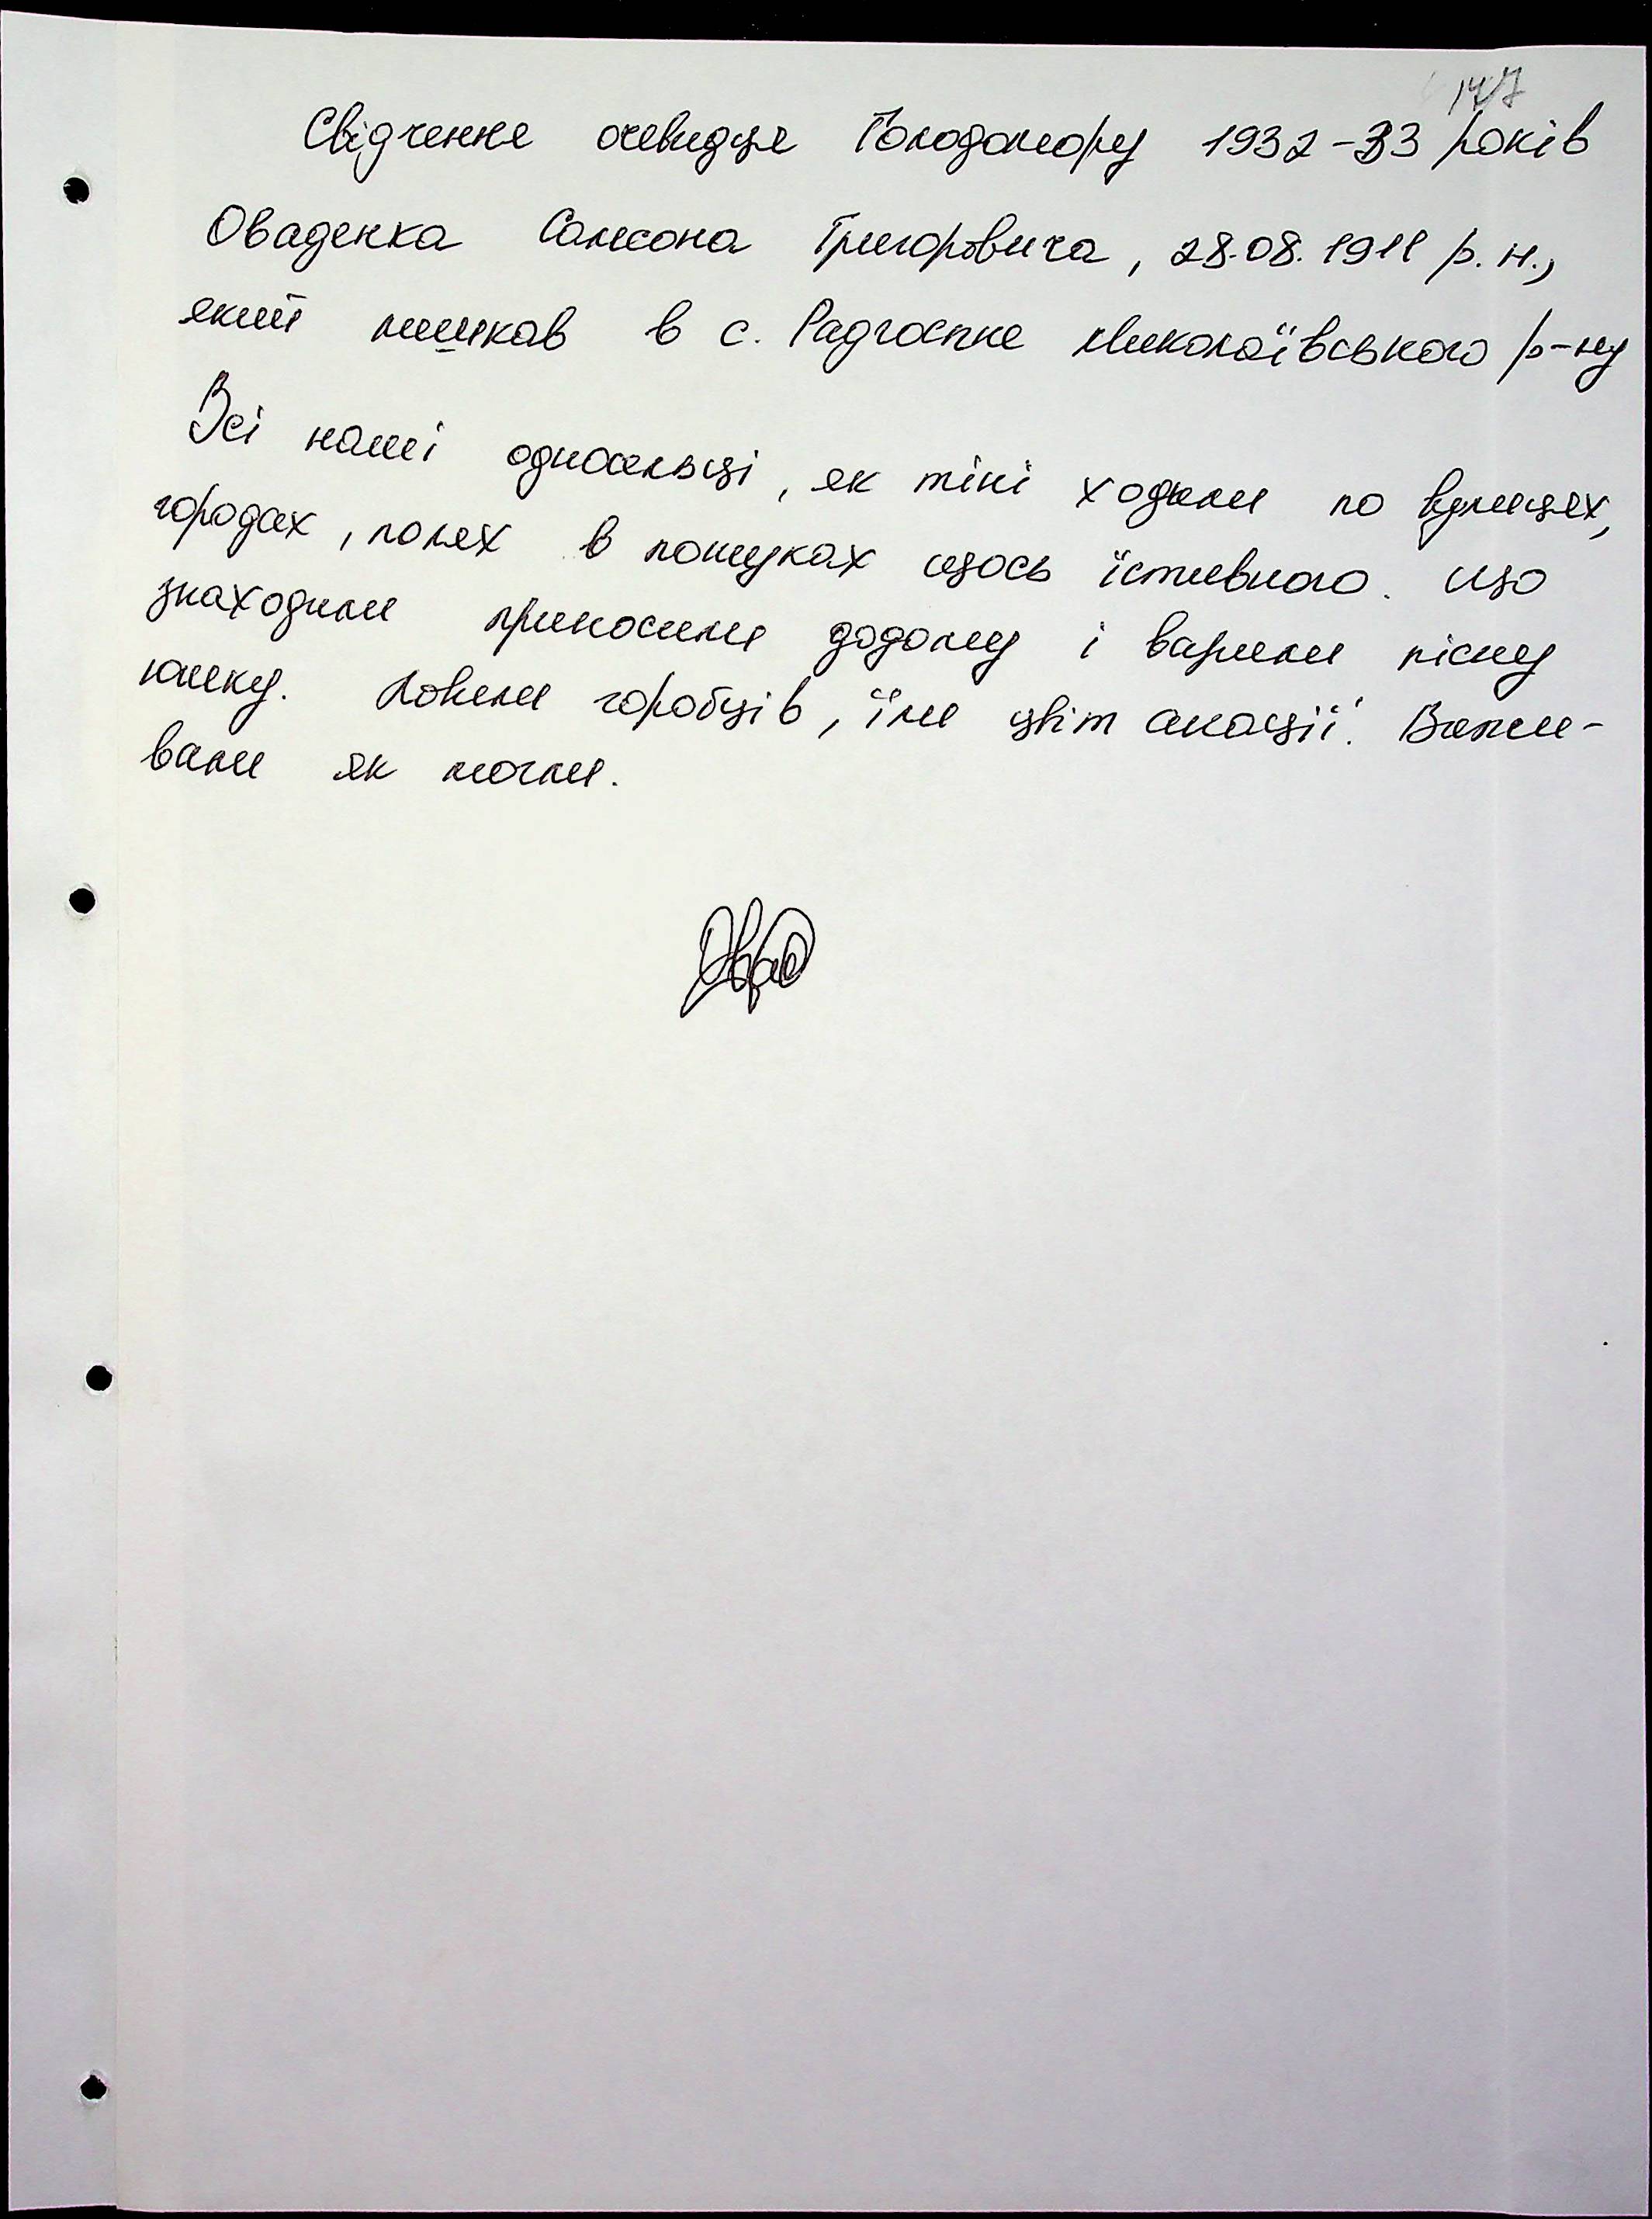 147
Свідчення очевидця Голодомору 1932-33 років
Оваденка Самсона Григоровича, 28.08.1911 р.н.,
який мешкав в с. Радгоспне Миколаївського р-ну
Всі наші односельці, як тіні ходили по вулицях,
городах, полях в пошуках щось їстивного. Що
знаходили приносили додому і варили пісну
юшку. Ловили горобців, їли цвіт акації. Вижи-
вали як могли.